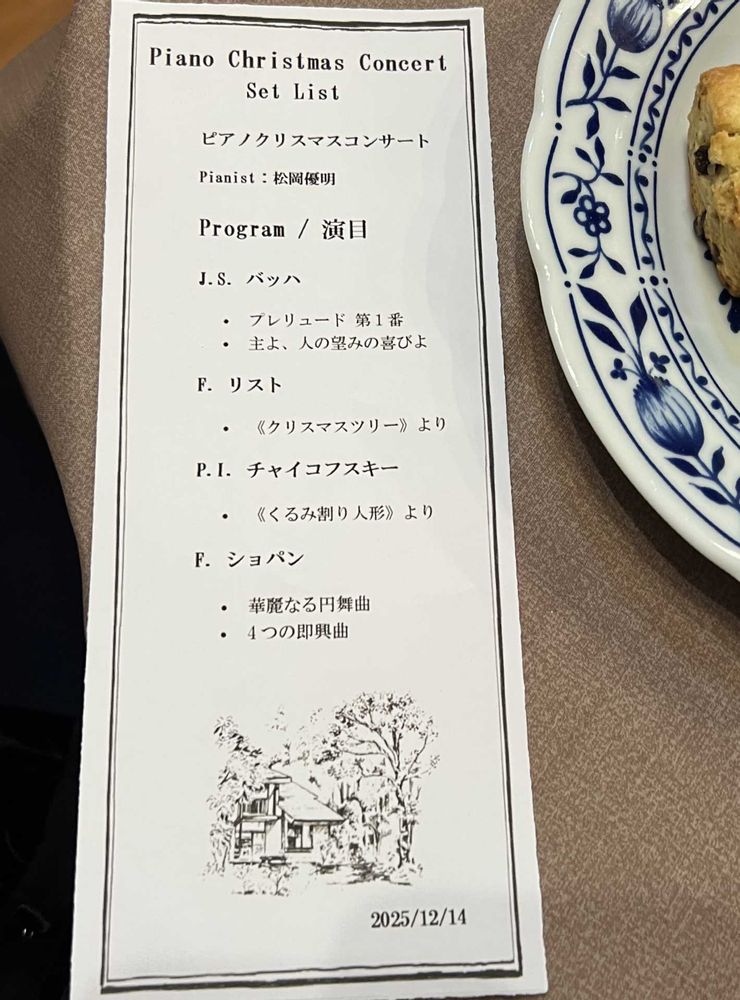 Piano Christmas Concert
Set List
ピアノクリスマスコンサート
Pianist：松岡優明
Program / 演目
J.S. バッハ
• プレリュード 第１番
• 主よ、人の望みの喜びよ
F. リスト
• 《クリスマスツリー》より
P.I. チャイコフスキー
• 《くるみ割り人形》より
F. ショパン
• 華麗なる円舞曲
• ４つの即興曲
2025/12/14